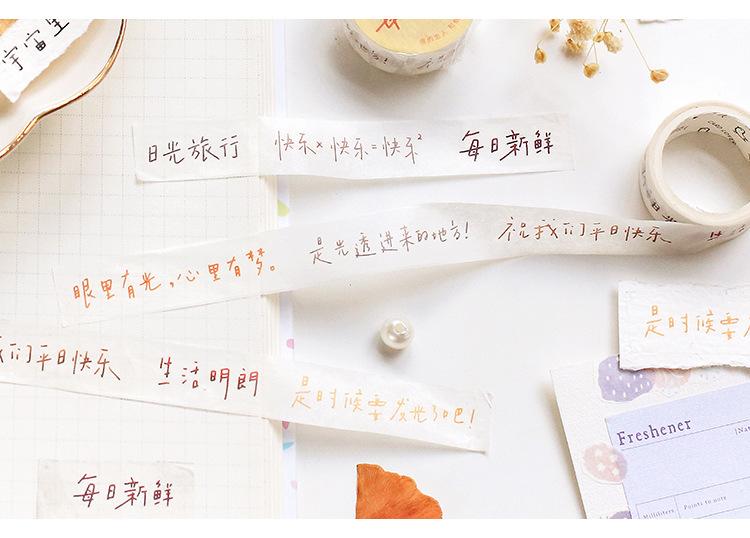 宇宙里
日光旅行 快乐×快乐=快乐² 每日新鲜
眼里有光,心里有梦。 是光透进来的地方! 祝我们平日快乐
们平日快乐 生活明朗 是时候要发光了吧!
是时候要
每日新鲜
Freshener
Milliliters Points to note